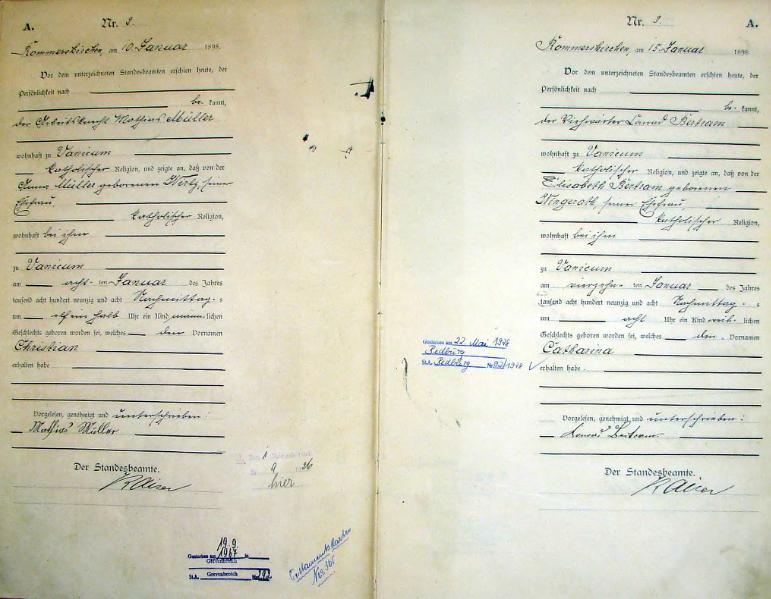 A.
Nr. 2.
Rommerskirchen, am 10. Januar 1898.
Vor dem unterzeichneten Standesbeamten erschien heute, der
Persönlichkeit nach
be kannt,
der Arbeitsknecht Mathias Müller
wohnhaft zu Vanicum
katholischer Religion, und zeigte an, daß von der
Anna Müller geborenen Wertz, seiner
Ehefrau,
katholischer Religion,
wohnhaft bei ihm
zu Vanicum
am acht-ten Januar des Jahres
tausend acht hundert neunzig und acht Nachmittag-s
um acht ein halb Uhr ein Kind männ-lichen
Geschlechts geboren worden sei, welches den Vornamen
Christian
erhalten habe
Vorgelesen, genehmigt und unterschrieben:
Mathias Müller
Der Standesbeamte.
Kaiser
hier
Gestorben am 19.9.1967 in
Grevenbroich
St.A. Grevenbroich Nr.
Testamentskartei
Nr. 3.
A.
Rommerskirchen, am 15. Januar 1898.
Vor dem unterzeichneten Standesbeamten erschien heute, der
Persönlichkeit nach
be kannt,
der Viehwärter Conrad Bertram
wohnhaft zu Vanicum
katholischer Religion, und zeigte an, daß von der
Elisabeth Bertram geborenen
Ningeroth, seiner Ehefrau,
katholischer Religion,
wohnhaft bei ihm
zu Vanicum
am vierzehn-ten Januar des Jahres
tausend acht hundert neunzig und acht Nachmittag-s
um acht Uhr ein Kind weib-lichen
Geschlechts geboren worden sei, welches den Vornamen
Catharina
erhalten habe.
Vorgelesen, genehmigt und unterschrieben:
Conrad Bertram
Der Standesbeamte.
Kaiser
Gestorben am 22. Mai 1978
Bedburg
St.A. Bedburg Nr. /1978